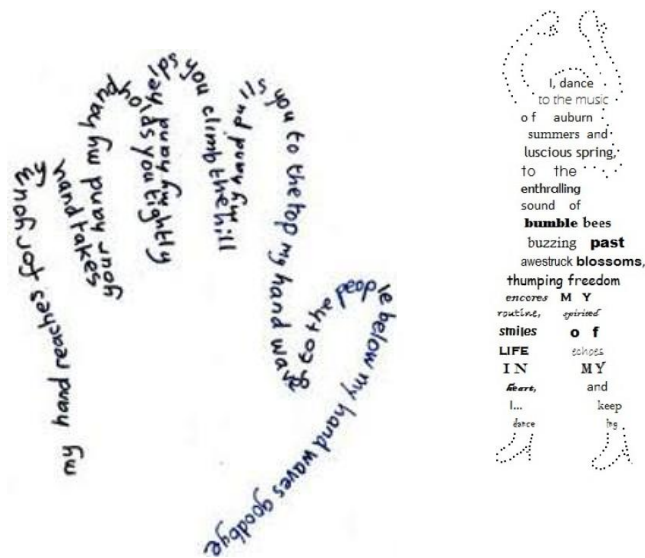 my hand reaches for yours
my
hand takes
your hand my hand
holds you tightly
my hand helps you climb the hill
my hand pulls you to the top my hand waves
to the people below my hand waves goodbye
I, dance
to the music
of auburn
summers and
luscious spring,
to the
enthralling
sound of
bumble bees
buzzing past
awestruck blossoms,
thumping freedom
encores MY
routine, spirited
smiles of
LIFE echoes
IN MY
heart, and
I... keep
dance ing